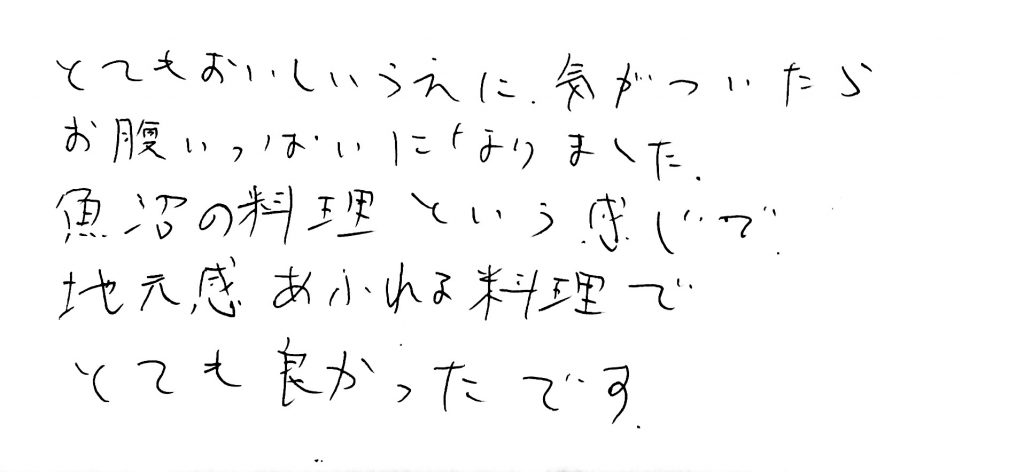 とてもおいしいうえに、気がついたら
お腹いっぱいになりました。
魚沼の料理という感じで、
地元感あふれる料理で
とても良かったです。